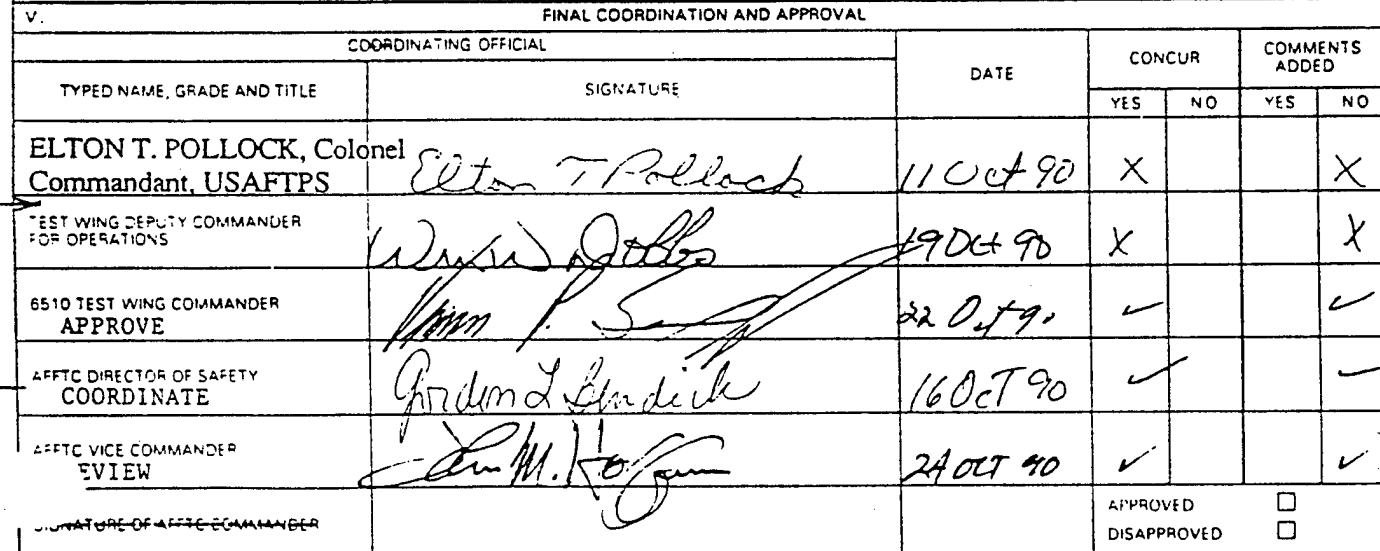 V. FINAL COORDINATION AND APPROVAL
COORDINATING OFFICIAL
DATE
CONCUR
COMMENTS ADDED
TYPED NAME, GRADE AND TITLE
SIGNATURE
YES NO YES NO
ELTON T. POLLOCK, Colonel
Commandant, USAFTPS
Elton T Pollock 11 Oct 90 X X
TEST WING DEPUTY COMMANDER
FOR OPERATIONS
19 Oct 90 X X
6510 TEST WING COMMANDER
APPROVE
P. 22 Oct 90 ✓ ✓
AFFTC DIRECTOR OF SAFETY
COORDINATE
Gordon L 16 OcT 90 ✓ ✓
AFFTC VICE COMMANDER
EVIEW
M. 24 OCT 90 ✓ ✓
SIGNATURE OF AFFTC COMMANDER
APPROVED ☐
DISAPPROVED ☐